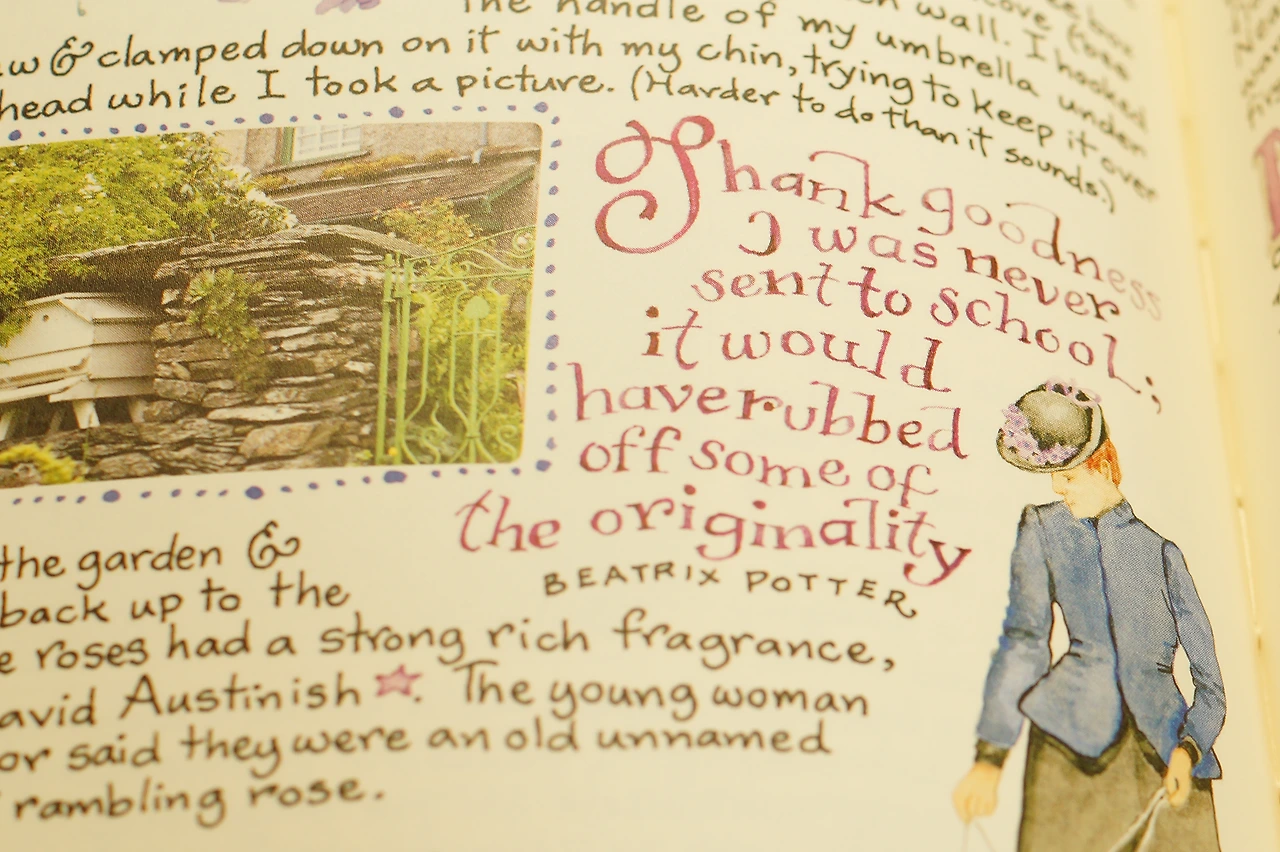 cove (see
wall. I hooked
The handle of my umbrella under
& clamped down on it with my chin, trying to keep it over
head while I took a picture. (Harder to do than it sounds.)
Thank goodness
I was never
sent to school;
it would
have rubbed
off some of
the originality
BEATRIX POTTER
the garden &
back up to the
roses had a strong rich fragrance,
avid Austinish ☆. The young woman
or said they were an old unnamed
rambling rose.